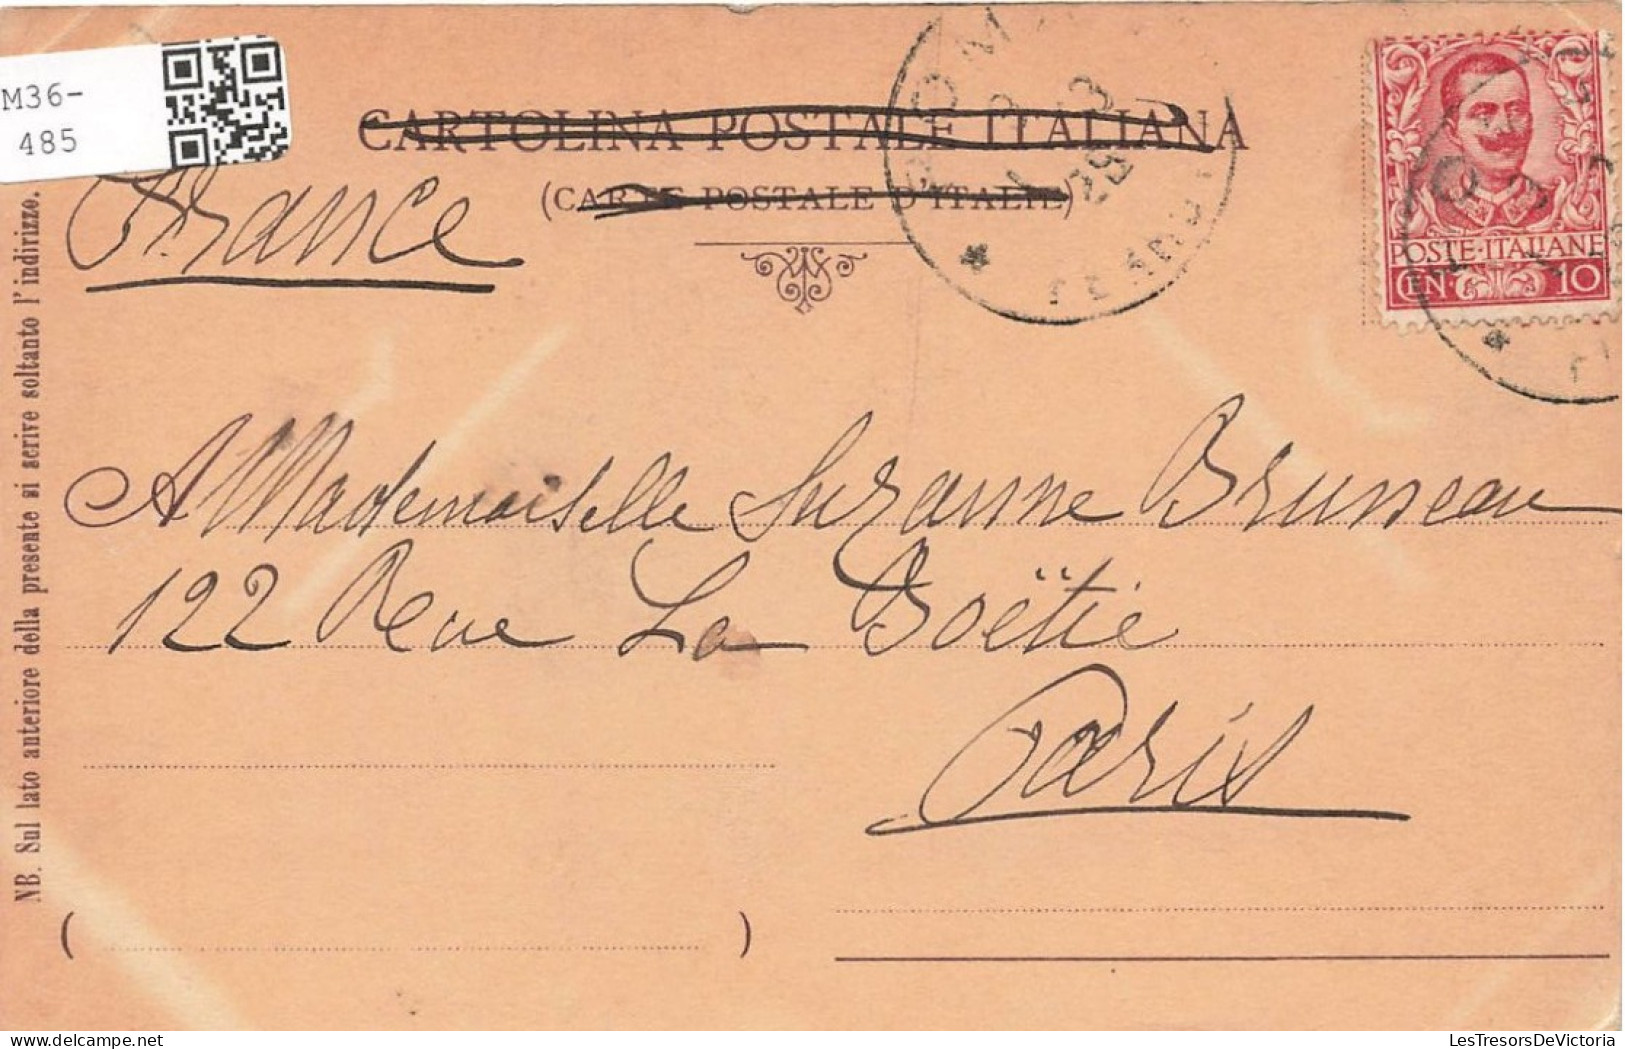 M36-
485
CARTOLINA POSTALE ITALIANA
(CARTE POSTALE D'ITALIE)
France
ROMA
POSTE·ITALIANE
CEN· 10
A Mademoiselle Suzanne Bruneau
122 Rue La Boëtie
Paris
NB. Sul lato anteriore della presente si scrive soltanto l'indirizzo.
( )
LesTresorsDeVictoria